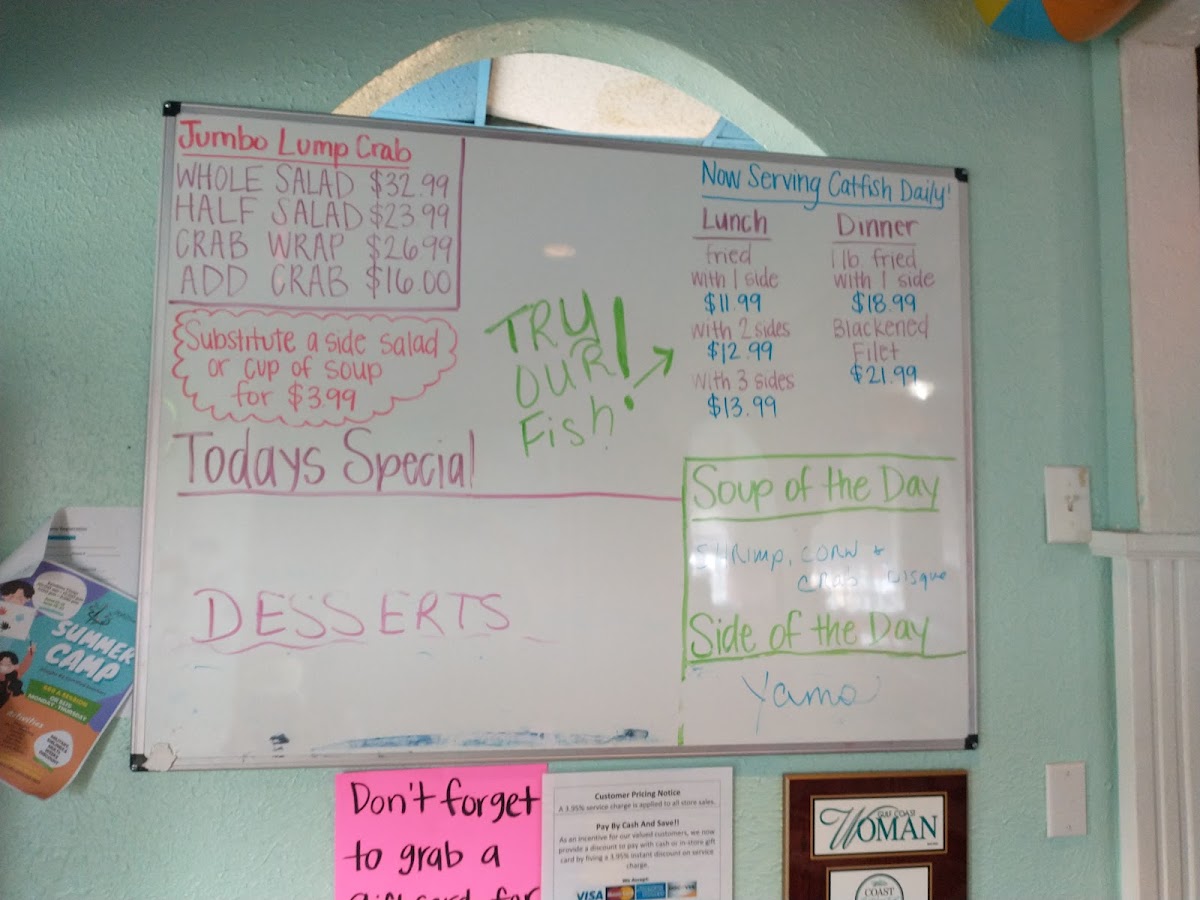 Jumbo Lump Crab
WHOLE SALAD $32.99
HALF SALAD $23.99
CRAB WRAP $26.99
ADD CRAB $16.00
Substitute a side salad
or cup of soup
for $3.99
Todays Special
DESSERTS
TRY
OUR
Fish!
Now Serving Catfish Daily!
Lunch
fried
with 1 side
$11.99
with 2 sides
$12.99
with 3 sides
$13.99
Dinner
1 lb. fried
with 1 side
$18.99
Blackened
Filet
$21.99
Soup of the Day
SHRimp, CORN +
CRab Bisque
Side of the Day
Yams
SUMMER
CAMP
Don't forget
to grab a
gift card for
Customer Pricing Notice
A 3.95% service charge is applied to all store sales.
Pay By Cash And Save!!
As an incentive for our valued customers, we now
provide a discount to pay with cash or in-store gift
card by giving a 3.95% instant discount on service
charge.
We Accept:
VISA
GULF COAST
WOMAN
COAST